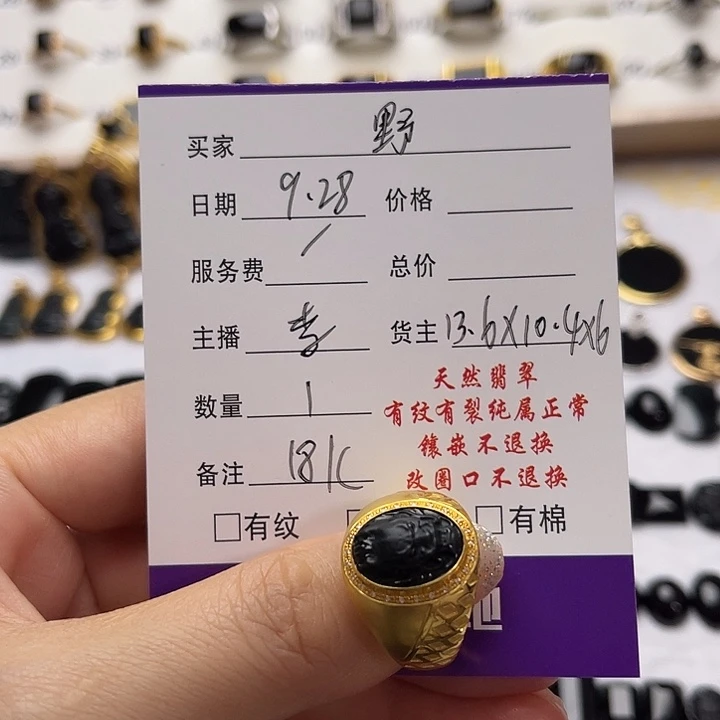 买家 野
日期 9.28 价格
服务费 / 总价
主播 李 货主 13.6X10.4X6
数量 1 天然翡翠
有纹有裂纯属正常
镶嵌不退换
备注 18K 改圈口不退换
□有纹 □有棉